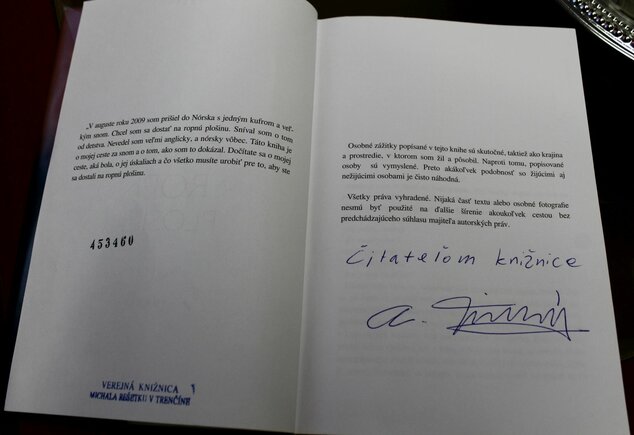 „V auguste roku 2009 som prišiel do Nórska s jedným kufrom a veľ-
kým snom. Chcel som sa dostať na ropnú plošinu. Sníval som o tom
od detstva. Nevedel som veľmi anglicky, a nórsky vôbec. Táto kniha je
o mojej ceste za snom a o tom, ako som to dokázal. Dočítate sa o mojej
ceste, aká bola, o jej úskaliach a čo všetko musíte urobiť pre to, aby ste
sa dostali na ropnú plošinu.
453460
VEREJNÁ KNIŽNICA
MICHALA REŠETKU V TRENČÍNE
Osobné zážitky popísané v tejto knihe sú skutočné, taktiež ako krajina
a prostredie, v ktorom som žil a pôsobil. Naproti tomu, popisované
osoby sú vymyslené. Preto akákoľvek podobnosť so žijúcimi aj
nežijúcimi osobami je čisto náhodná.
Všetky práva vyhradené. Nijaká časť textu alebo osobné fotografie
nesmú byť použité na ďalšie šírenie akoukoľvek cestou bez
predchádzajúceho súhlasu majiteľa autorských práv.
Čitateľom knižnice
a.